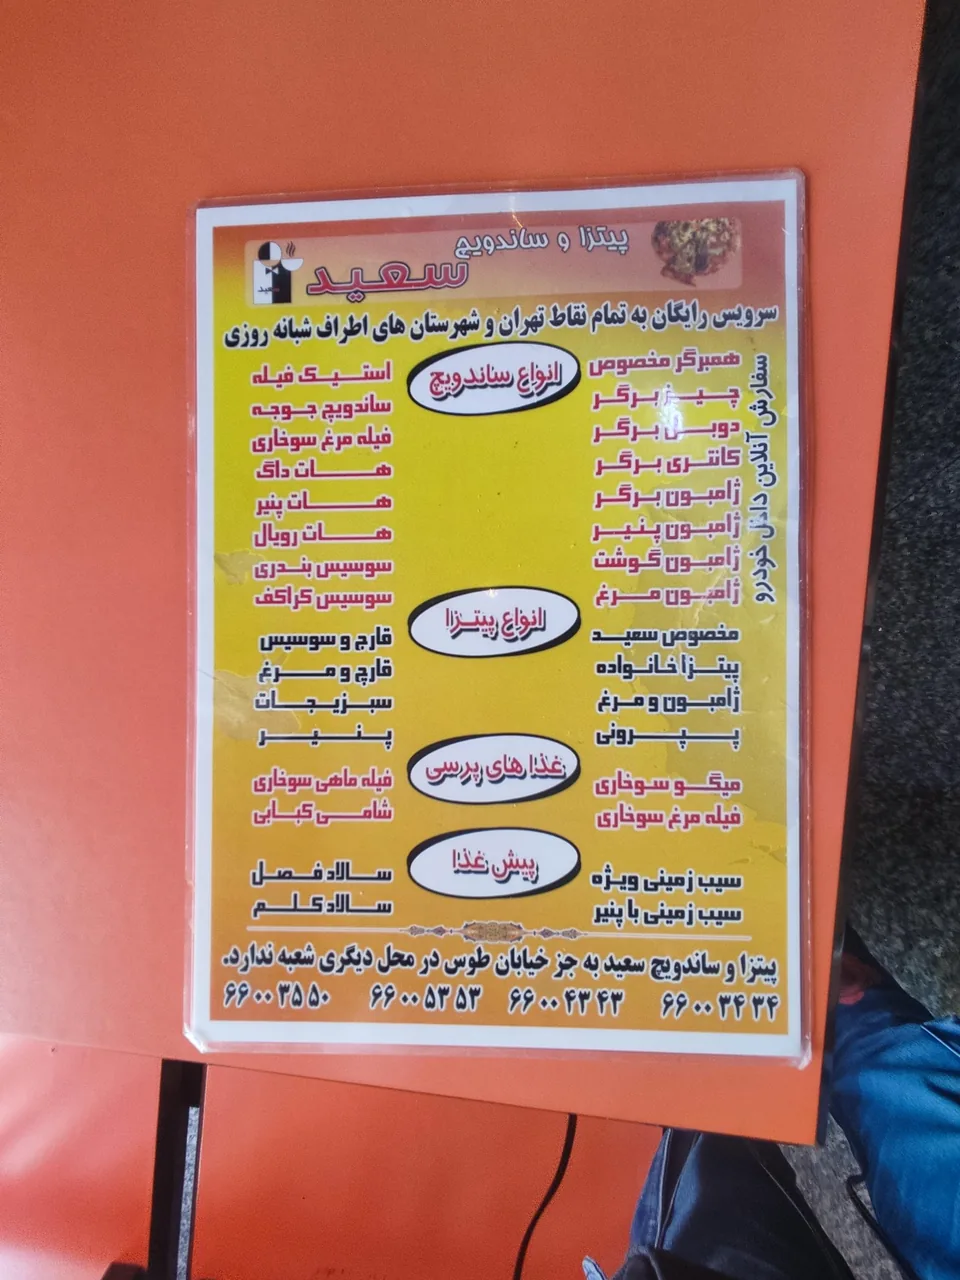 پیتزا و ساندویچ
سعید
سعید
سرویس رایگان به تمام نقاط تهران و شهرستان های اطراف شبانه روزی
سفارش آنلاین داخل خودرو
انواع ساندویچ
همبرگر مخصوص
چیزبرگر
دوبل برگر
کانتری برگر
ژامبون برگر
ژامبون پنیر
ژامبون گوشت
ژامبون مرغ
استیک فیله
ساندویچ جوجه
فیله مرغ سوخاری
هات داگ
هات پنیر
هات رویال
سوسیس بندری
سوسیس کراکف
انواع پیتزا
مخصوص سعید
پیتزا خانواده
ژامبون و مرغ
پپرونی
قارچ و سوسیس
قارچ و مرغ
سبزیجات
پنیر
غذا های پرسی
میگو سوخاری
فیله مرغ سوخاری
فیله ماهی سوخاری
شامی کبابی
پیش غذا
سیب زمینی ویژه
سیب زمینی با پنیر
سالاد فصل
سالاد کلم
پیتزا و ساندویچ سعید به جز خیابان طوس در محل دیگری شعبه ندارد.
۶۶۰۰۳۴۳۴ ۶۶۰۰۴۳۴۳ ۶۶۰۰۵۳۵۳ ۶۶۰۰۳۵۵۰